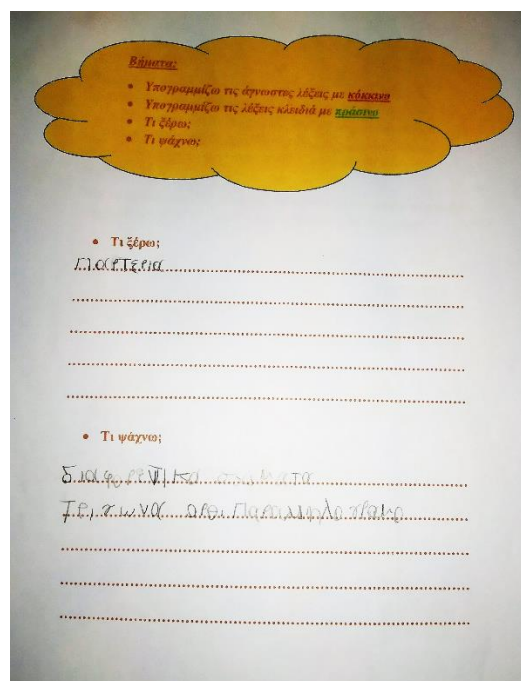 Βήματα:
• Υπογραμμίζω τις άγνωστες λέξεις με κόκκινο
• Υπογραμμίζω τις λέξεις κλειδιά με πράσινο
• Τι ξέρω;
• Τι ψάχνω;
• Τι ξέρω;
• Τι ψάχνω;
διαφορετικα σχηματα
Τριγωνα